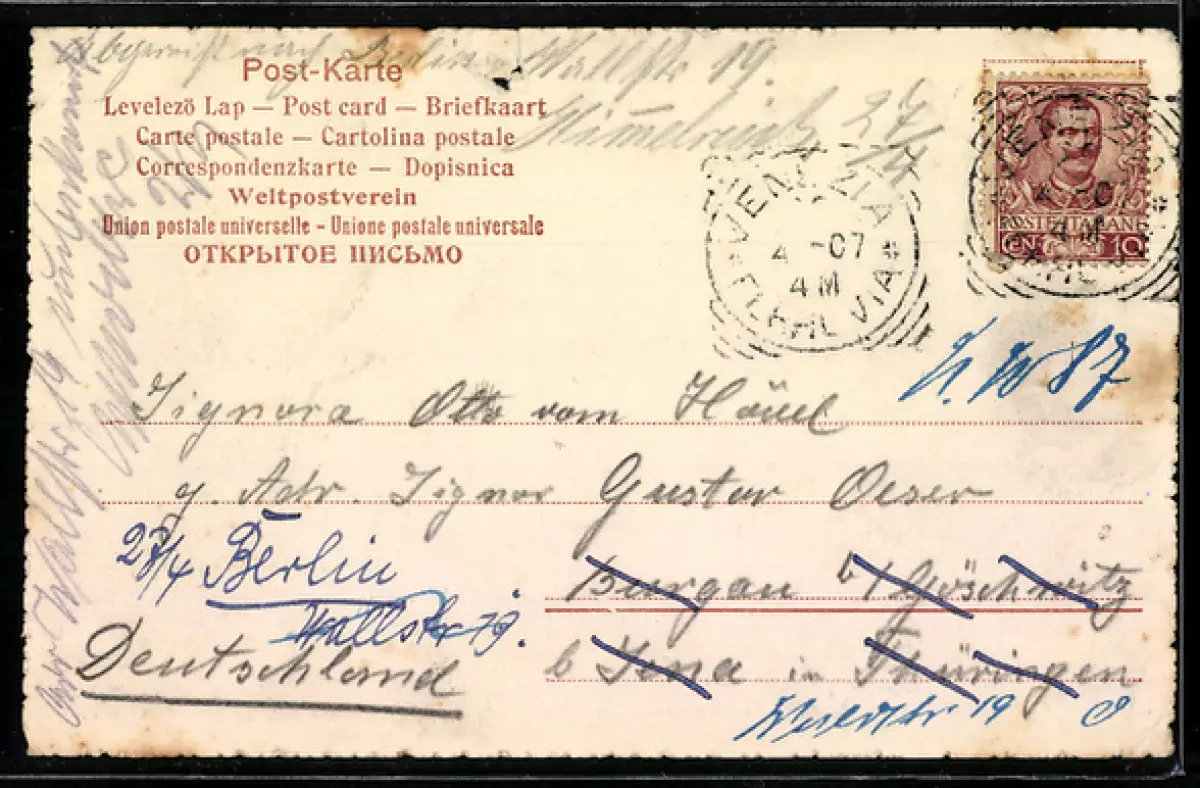 Abgereist nach Berlin Wallstr 19.
Post-Karte
Levelező Lap — Post card — Briefkaart
Carte postale — Cartolina postale
Correspondenzkarte — Dopisnica
Weltpostverein
Union postale universelle - Unione postale universale
ОТКРЫТОЕ ПИСЬМО
27/4
VENEZIA
4 -07
4 M
POSTE ITALIANE
CEN 10
N. W 87
Signora Otto vom Hövel
p. Adr. Signor Gustav Oeser
Burgau b/ Göschwitz
b Jena in Thüringen
27/4 Berlin
Wallstr 19.
Deutschland
19
Wallstr 19